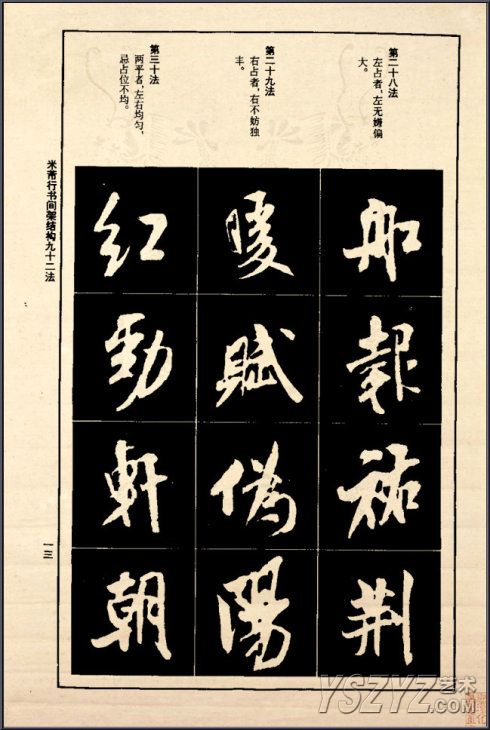 第二十八法
左占者,左无嫌偏
大。
船
報
祐
荆
第二十九法
右占者,右不妨独
丰。
暖
賦
偽
陽
第三十法
两平者,左右均匀,
忌占位不均。
红
勁
軒
朝
米芾行书间架结构九十二法
一三
YSZYZ艺术